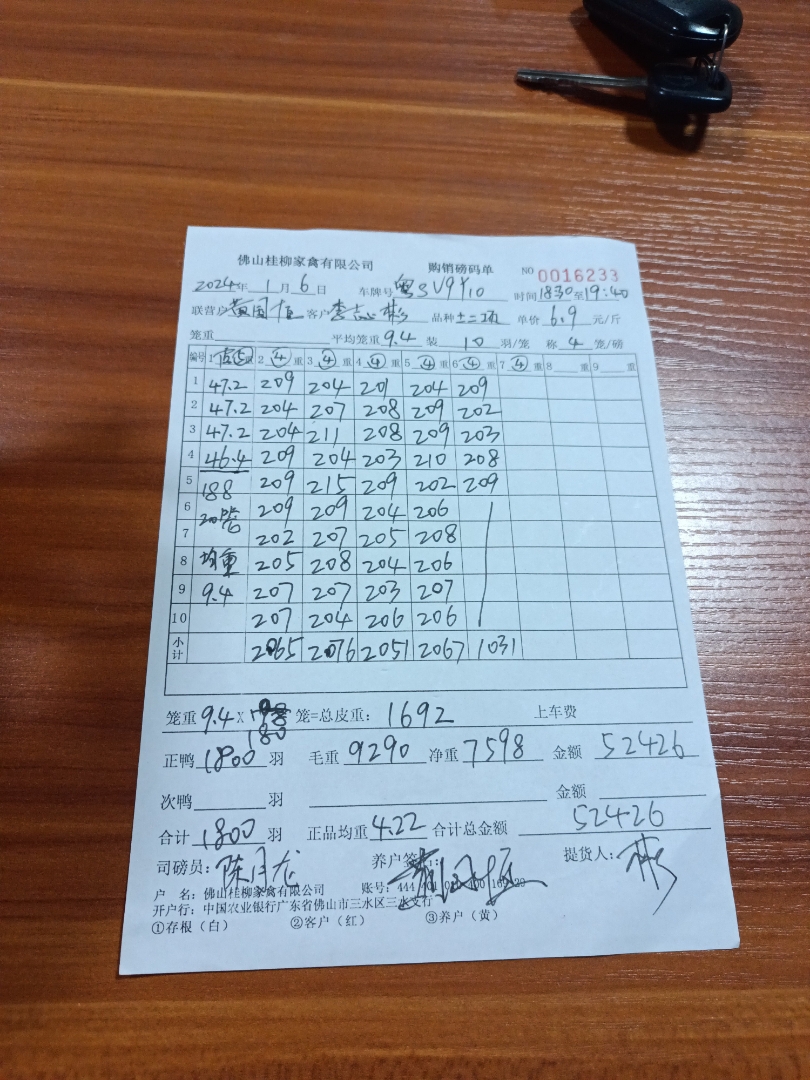 佛山桂柳家禽有限公司 购销磅码单 NO 0016233
2024年 1月 6日 车牌号 粤SV9Y10 时间 18:30 至 19:40
联营户 黄国恒 客户 李志彬 品种 土二项 单价 6.9 元/斤
笼重 平均笼重 9.4 装 10 羽/笼 称 4 笼/磅
编号 1 重 2 ④ 重 3 ④ 重 4 ④ 重 5 ④ 重 6 ④ 重 7 ④ 重 8 重 9 重
1 47.2 209 204 201 204 209
2 47.2 204 207 208 209 202
3 47.2 204 211 208 209 203
4 46.4 209 204 203 210 208
5 188 209 215 209 202 209
6 20 209 209 204 206
7 202 207 205 208
8 均重 205 208 204 206
9 9.4 207 207 203 207
10 207 204 206 206
小计 2065 2076 2051 2067 1031
笼重 9.4 X 180 笼=总皮重: 1692 上车费
正鸭 1800 羽 毛重 9290 净重 7598 金额 52426
次鸭 羽 金额
合计 1800 羽 正品均重 4.22 合计总金额 52426
司磅员: 陈月龙 养户签 提货人: 彬
户 名: 佛山桂柳家禽有限公司 账号: 444
开户行: 中国农业银行广东省佛山市三水区三水支行
①存根(白) ②客户(红) ③养户(黄)